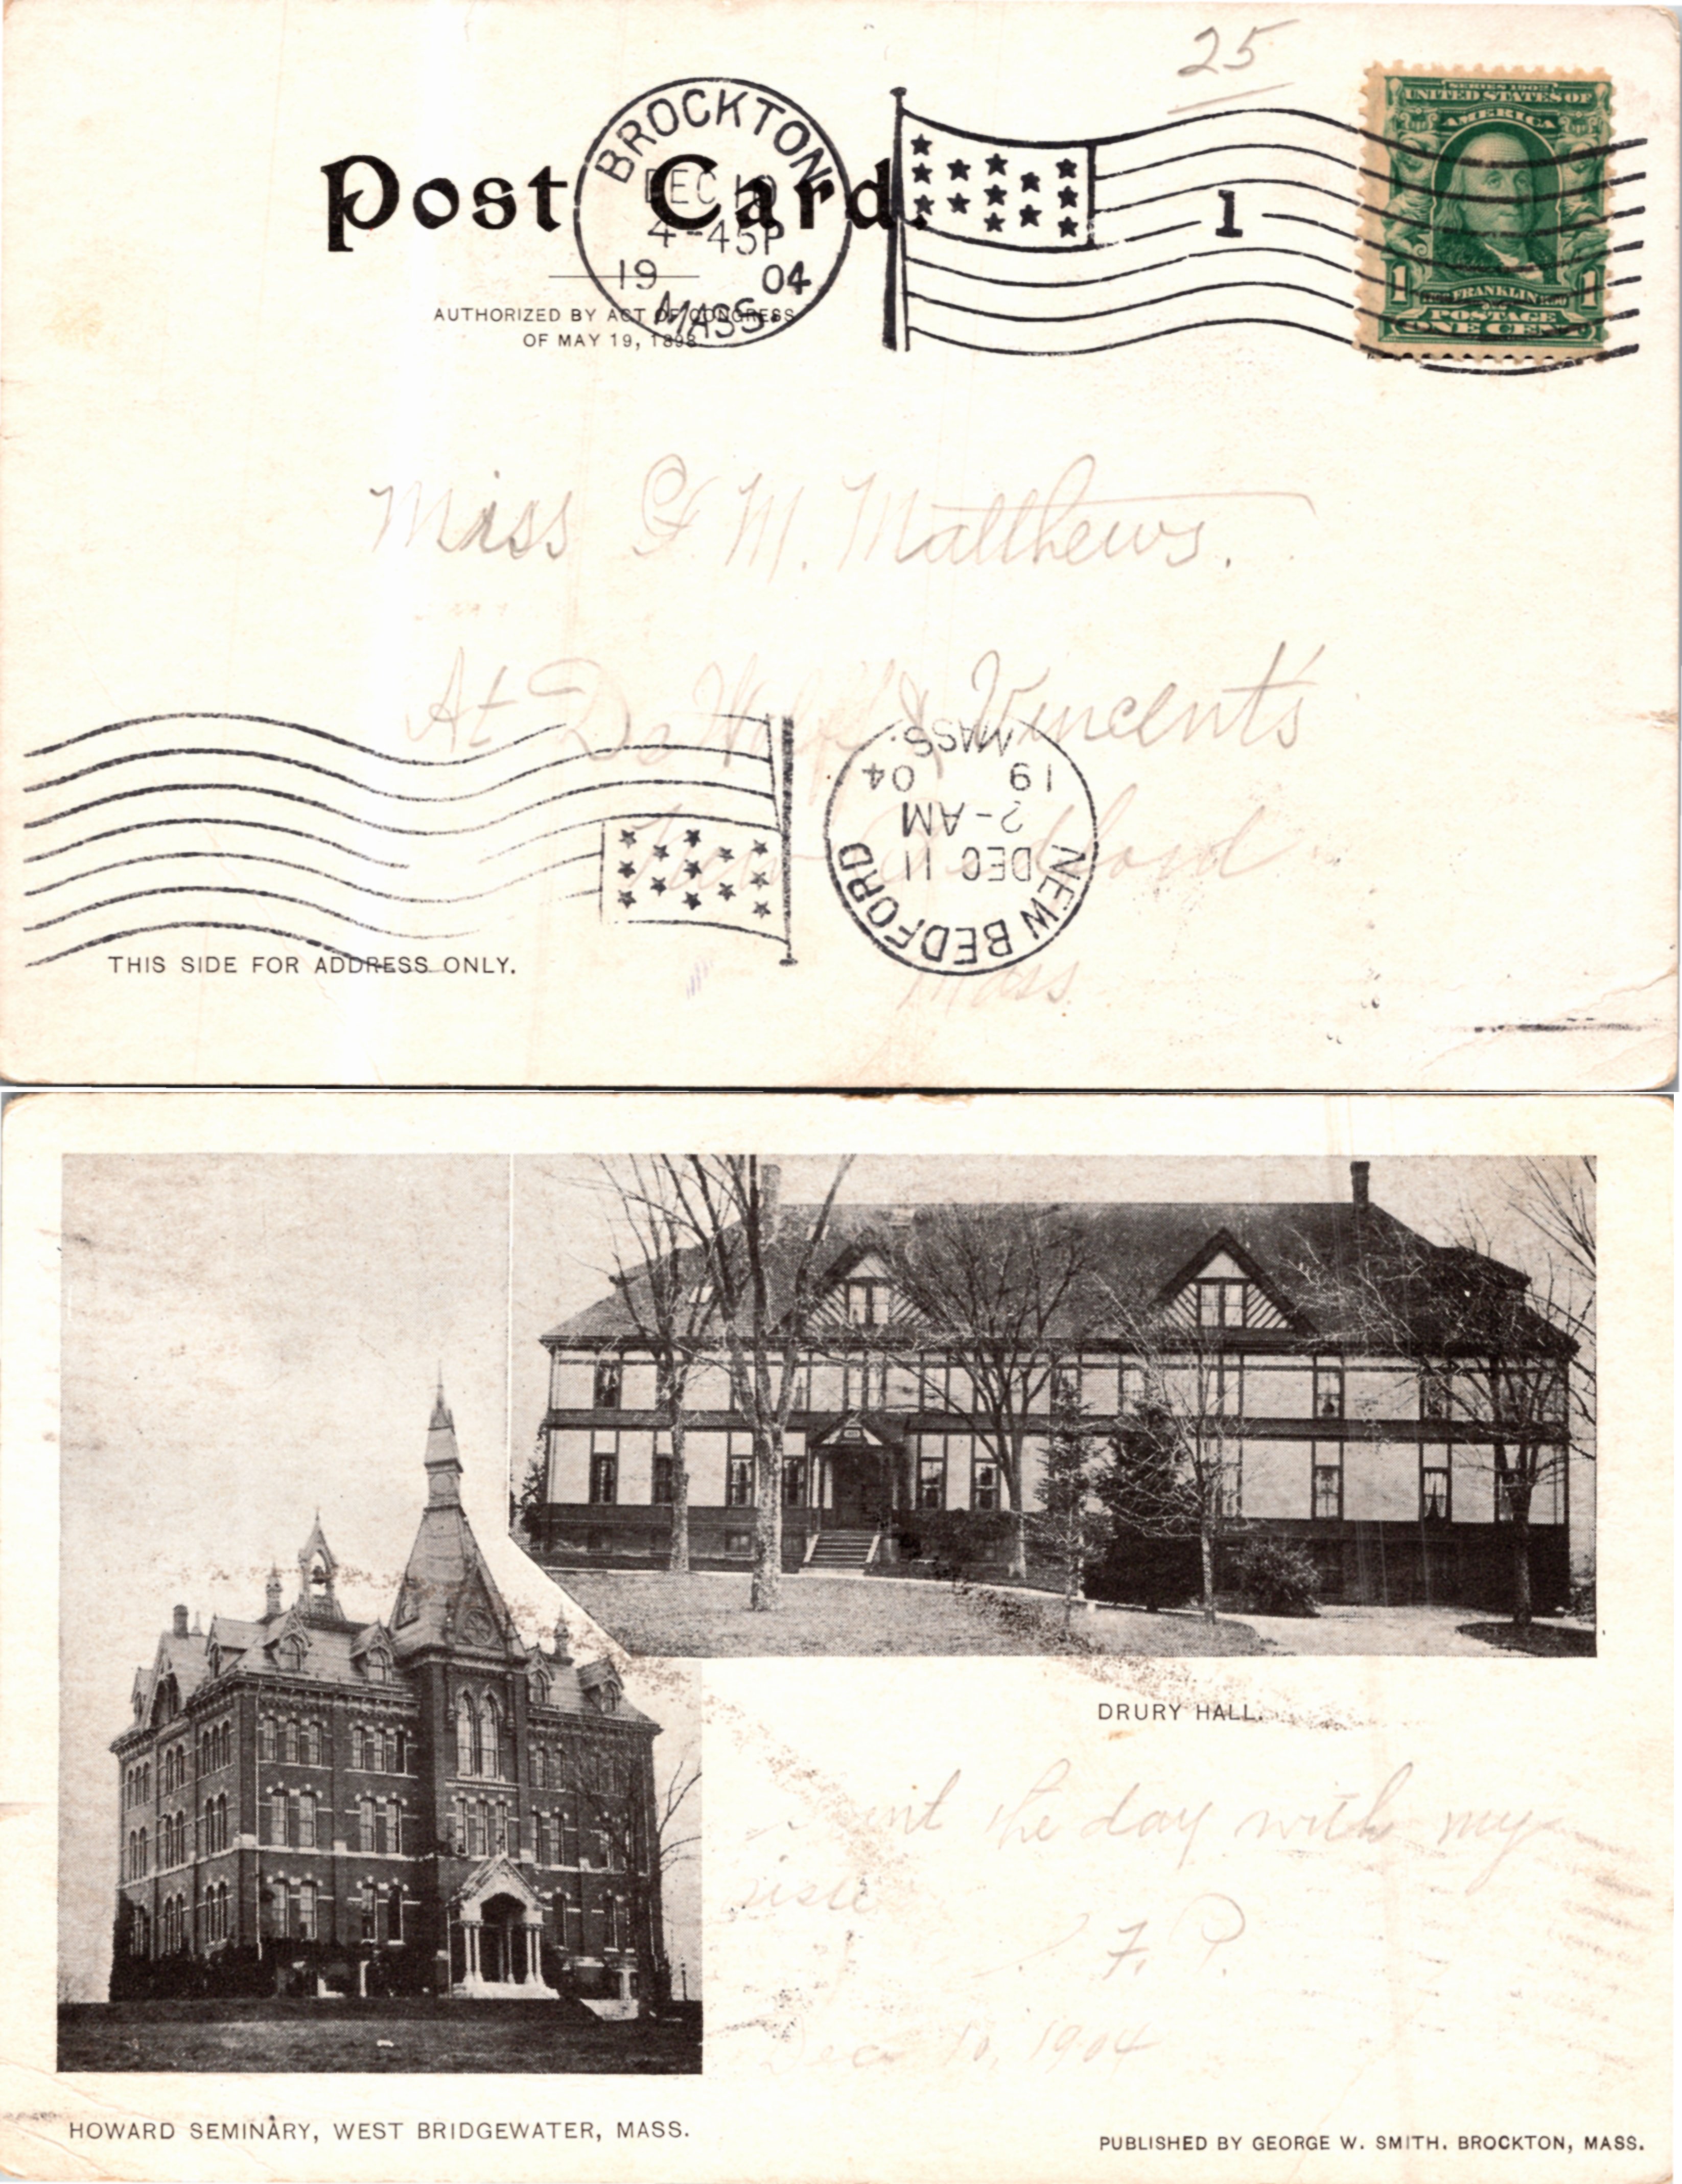 25
Post Card.
BROCKTON
DEC 10
4-45P
19 04
MASS.
1
SERIES 1902
UNITED STATES OF
AMERICA
1 FRANKLIN 1
POSTAGE
ONE CENT
AUTHORIZED BY ACT OF CONGRESS
OF MAY 19, 1898
Miss G. M. Matthews.
At De Wolf & Vincent's
New Bedford
Mass.
NEW BEDFORD
DEC 11
2-AM
19 04
MASS.
THIS SIDE FOR ADDRESS ONLY.
DRURY HALL.
the day with my
F. P.
Dec 10, 1904
HOWARD SEMINARY, WEST BRIDGEWATER, MASS.
PUBLISHED BY GEORGE W. SMITH. BROCKTON, MASS.